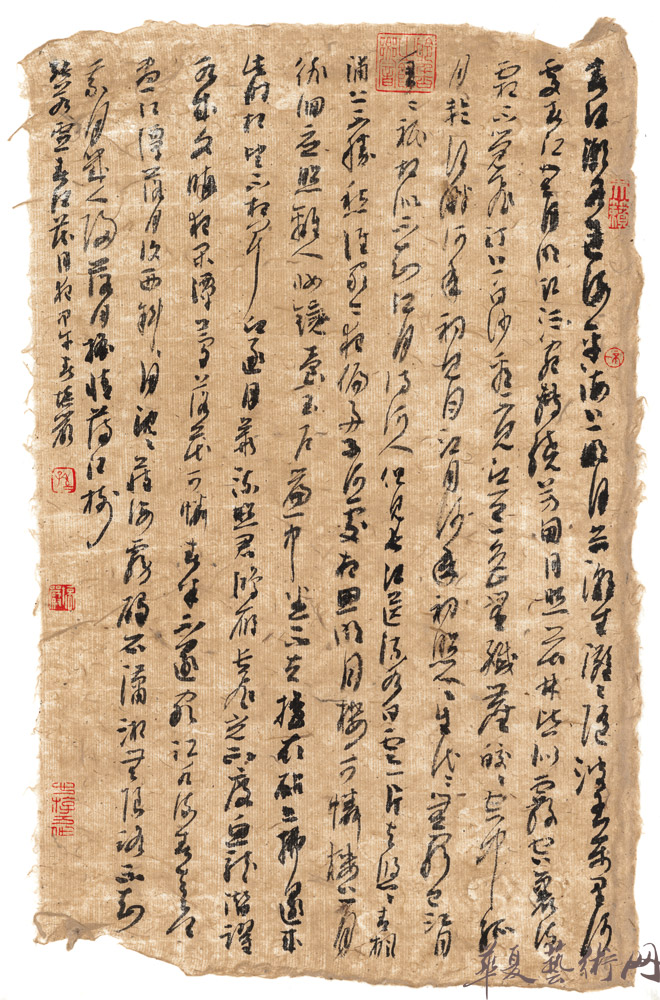 春江潮水連海平海上明月共潮生灩灩隨波千萬里何
處春江無月明江流宛轉繞芳甸月照花林皆似霰空裏流
霜不覺飛汀上白沙看不見江天一色無纖塵皎皎空中孤
月輪江畔何人初見月江月何年初照人人生代代無窮已江月
年年祗相似不知江月待何人但見長江送流水白雲一片去悠悠青楓
浦上不勝愁誰家今夜扁舟子何處相思明月樓可憐樓上月
徘徊應照離人妝鏡臺玉戶簾中卷不去搗衣砧上拂還來
此時相望不相聞願逐月華流照君鴻雁長飛光不度魚龍潛躍
水成文昨夜閑潭夢落花可憐春半不還家江水流春去欲
盡江潭落月復西斜斜月沉沉藏海霧碣石瀟湘無限路不知
乘月幾人歸落月搖情滿江樹
張若虛春江花月夜甲午春
華夏藝術网